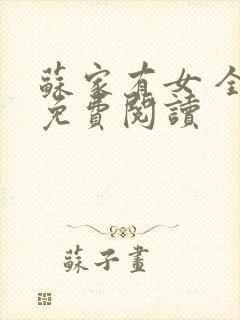 蘇家有女 全
免費閱讀
蘇子畫